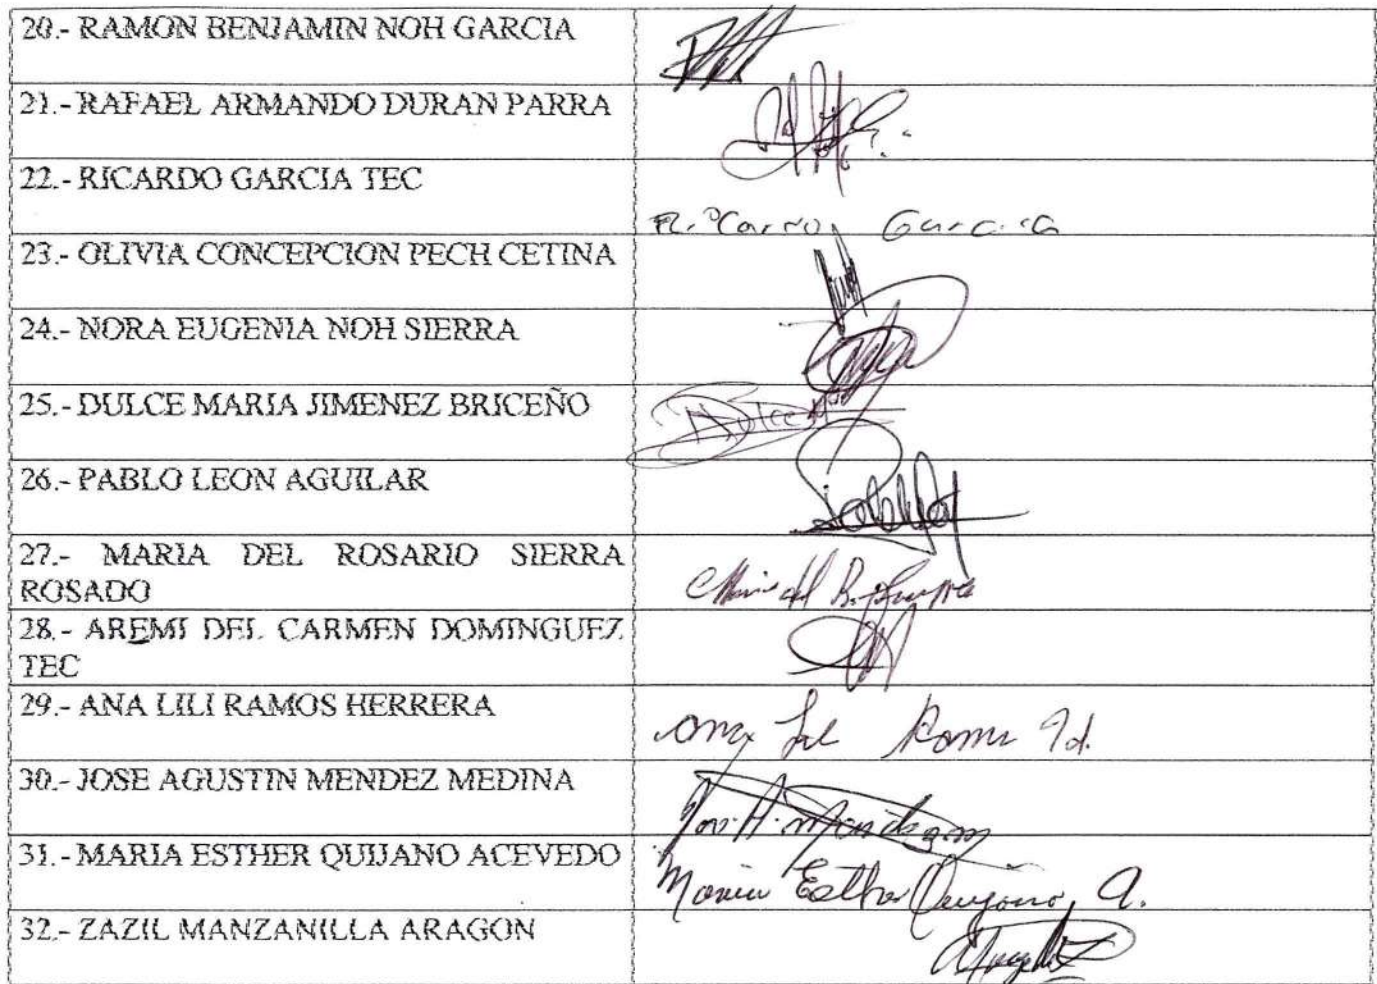 20.- RAMON BENJAMIN NOH GARCIA
21.- RAFAEL ARMANDO DURAN PARRA
22.- RICARDO GARCIA TEC
Ricardo Garcia
23.- OLIVIA CONCEPCION PECH CETINA
24.- NORA EUGENIA NOH SIERRA
25.- DULCE MARIA JIMENEZ BRICEÑO
Dulce M
26.- PABLO LEON AGUILAR
27.- MARIA DEL ROSARIO SIERRA
ROSADO
28.- AREMI DEL CARMEN DOMINGUEZ
TEC
29.- ANA LILI RAMOS HERRERA
30.- JOSE AGUSTIN MENDEZ MEDINA
31.- MARIA ESTHER QUIJANO ACEVEDO
Maria Esther Quijano A.
32.- ZAZIL MANZANILLA ARAGON